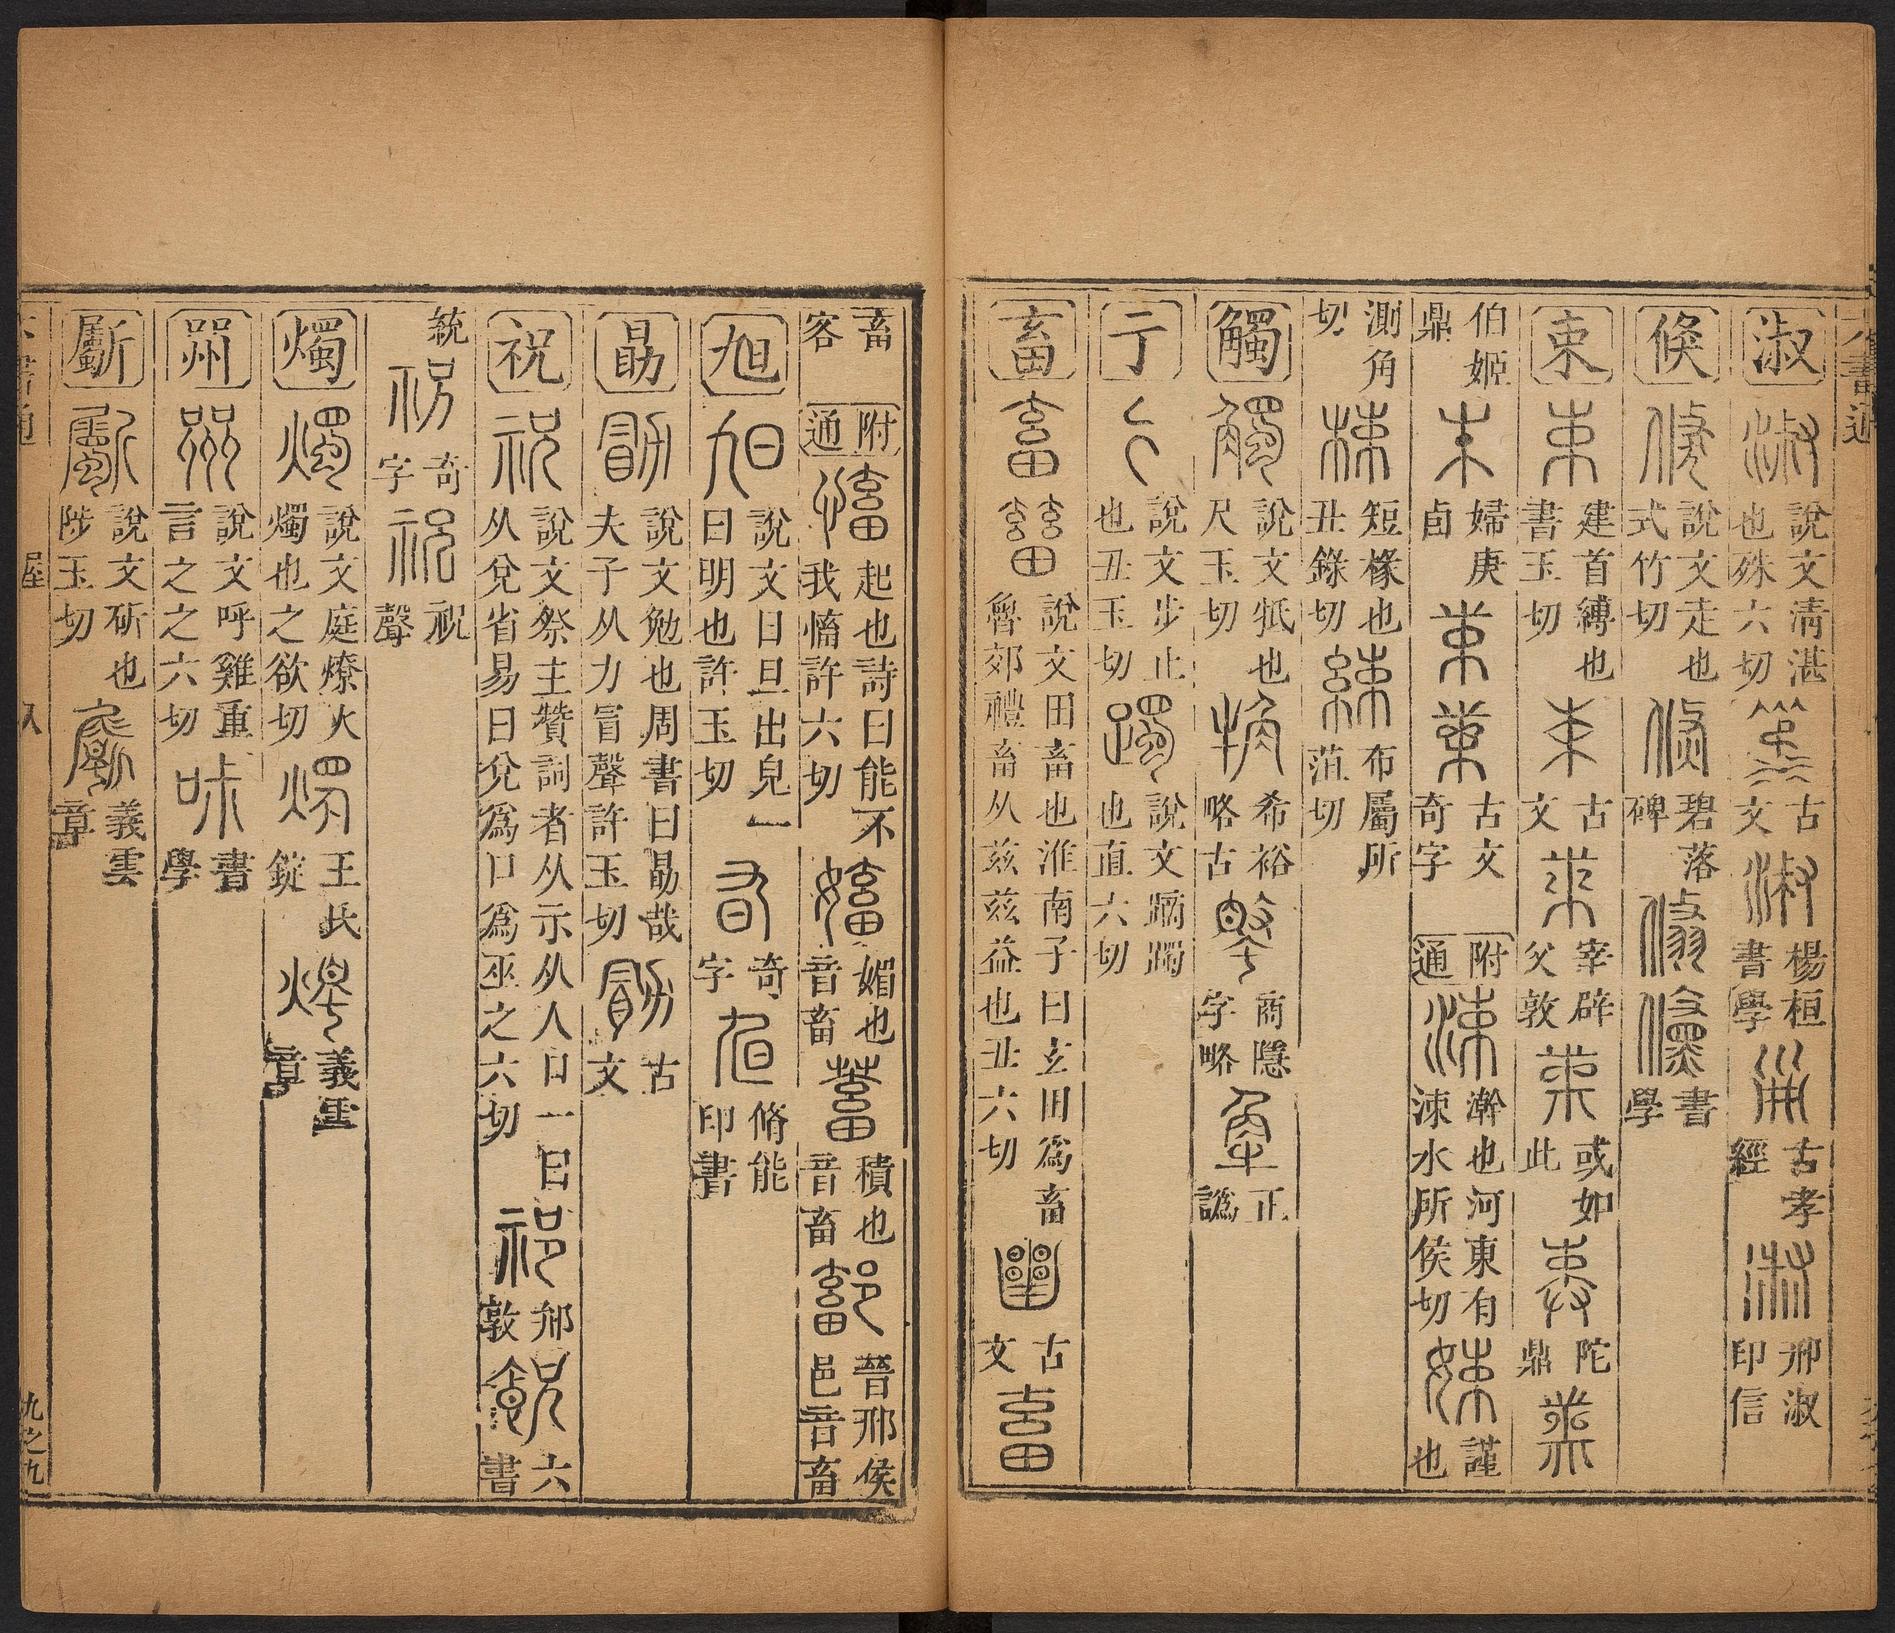 六書通
淑 說文清湛也殊六切 古文 楊桓書學 古孝經 邢淑印信
倏 說文走也式竹切 碧落碑 書學
束 建首縛也書玉切 古文 宰辟父敦 或如此 陀鼎
伯姬鼎 婦庚卣 古文奇字 附通 涑 澣也河東有涑水所侯切 娕 謹也
測角切 梀 短椽也丑錄切 綀 布屬所菹切
觸 說文牴也尺玉切 希裕略古 商隱字略 正譌
亍 說文步止也丑玉切 躅 說文蹢躅也直六切
畜 說文田畜也淮南子曰玄田爲畜魯郊禮畜从兹兹益也丑六切 古文
畜客 附通 慉 起也詩曰能不我慉許六切 媚也音畜 蓄 積也音畜 鄐 晉邢侯邑音畜
旭 說文日旦出皃一曰明也許玉切 奇字 脩能印書
勖 說文勉也周書曰勖哉夫子从力冒聲許玉切 古文
祝 說文祭主贊詞者从示从人口一曰从兌省易曰兌爲口爲巫之六切 郱敦 六書
統 奇字 祝聲
燭 說文庭燎火燭也之欲切 王氏錠 義雲章
喌 說文呼雞重言之之六切 書學
斸 說文斫也陟玉切 義雲章
六書通 屋 入 九之九